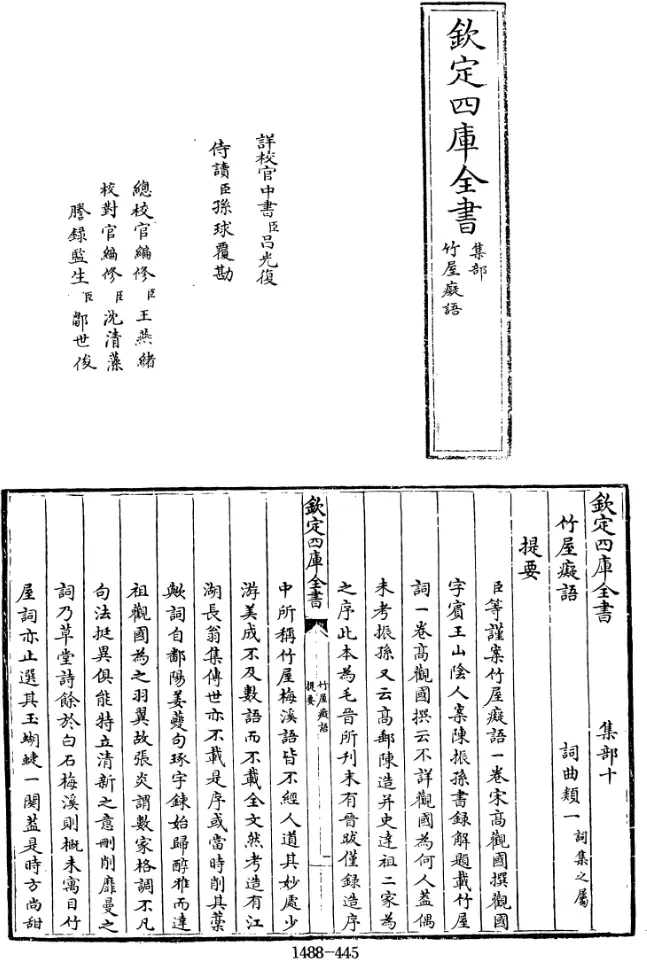 欽定四庫全書
集部
竹屋癡語
詳校官中書臣呂光復
侍讀臣孫球覆勘
總校官編修臣王燕緒
校對官編修臣沈清藻
謄錄監生臣鄒世俊
欽定四庫全書　集部十
竹屋癡語　詞曲類一詞集之屬
提要
臣等謹案竹屋癡語一卷宋高觀國撰觀國
字賓王山陰人案陳振孫書録解題載竹屋
詞一卷髙觀國撰云不詳觀國為何人蓋偶
未考振孫又云髙郵陳造并史達祖二家為
之序此本為毛晉所刊末有晉跋僅録造序
欽定四庫全書
竹屋癡語
提要
一
中所稱竹屋梅溪語皆不經人道其妙處少
游美成不及數語而不載全文然考造有江
湖長翁集傳世亦不載是序或當時削其藁
歟詞自鄱陽姜夔句琢字錬始歸醇雅而達
祖觀國為之羽翼故張炎謂數家格調不凡
句法挺異俱能特立清新之意刪削靡曼之
詞乃草堂詩餘於白石梅溪則概未寓目竹
屋詞亦止選其玉蝴蜨一闋蓋是時方尚甜
1488-445